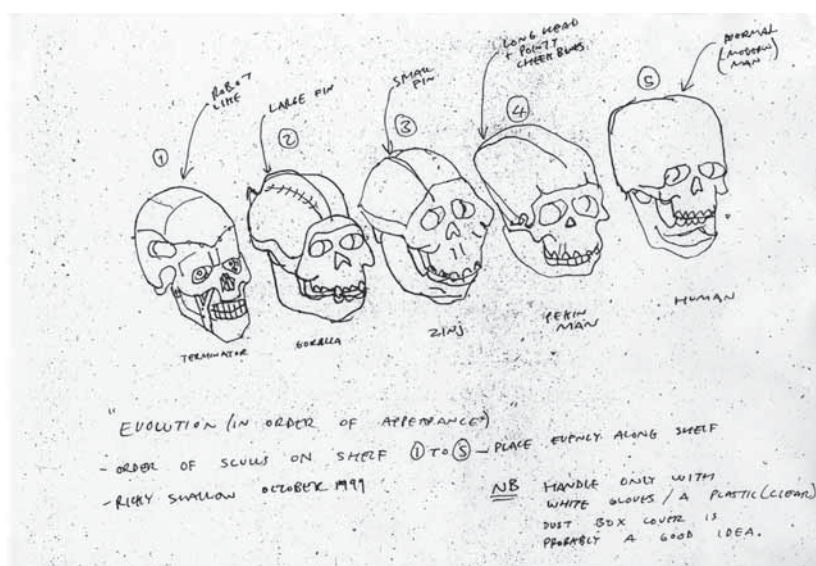 ①
ROBOT
LIKE
②
LARGE FIN
③
SMALL
FIN
④
LONG HEAD
+ POINTY
CHEEK BONES.
⑤
NORMAL
(MODERN)
MAN
TERMINATOR
GORILLA
ZINJ
PEKIN
MAN
HUMAN
"EVOLUTION (IN ORDER OF APPEARANCE)"
- ORDER OF SCULLS ON SHELF ① TO ⑤ - PLACE EVENLY ALONG SHELF
- RICKY SWALLOW OCTOBER 1999
NB HANDLE ONLY WITH
WHITE GLOVES / A PLASTIC (CLEAR)
DUST BOX COVER IS
PROBABLY A GOOD IDEA.